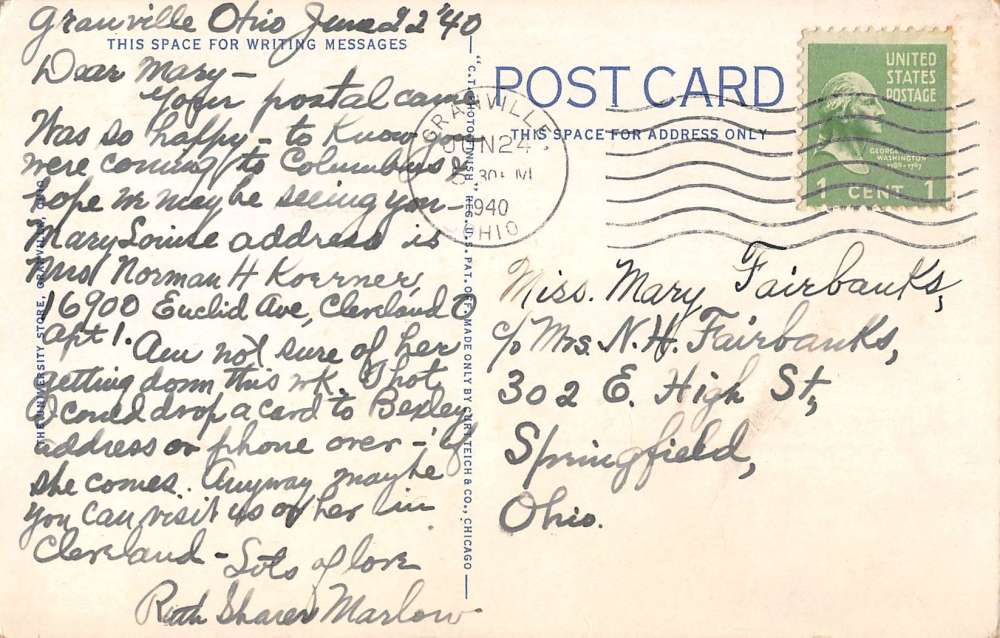 Granville Ohio June 22 '40
THIS SPACE FOR WRITING MESSAGES
Dear Mary –
Your postal came
Was so happy – to know you
were coming to Columbus &
hope we may be seeing you –
Mary Louise address is
Mrs Norman H Koerner,
16900 Euclid Ave, Cleveland O
Apt 1.
Am not sure of her
getting down this wk.
I could drop a card to Bexley
address or phone over – if
she comes. Anyway maybe
you can visit us or her in
Cleveland – Lots of love
Ruth Sharer Marlow
THE UNIVERSITY STORE, GRANVILLE, OHIO
"C.T. PHOTO-FINISH" REG. U.S. PAT. OFF. MADE ONLY BY CURT TEICH & CO., CHICAGO
POST CARD
THIS SPACE FOR ADDRESS ONLY
GRANVILLE
JUN 24
30 M
1940
OHIO
UNITED
STATES
POSTAGE
GEORGE
WASHINGTON
1789-1797
1 CENT 1
Miss. Mary Fairbanks,
c/o Mrs. N. H. Fairbanks,
302 E. High St,
Springfield,
Ohio.